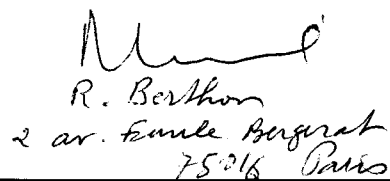 R. Berthon
2 av. Emile Bergerat
75016 Paris